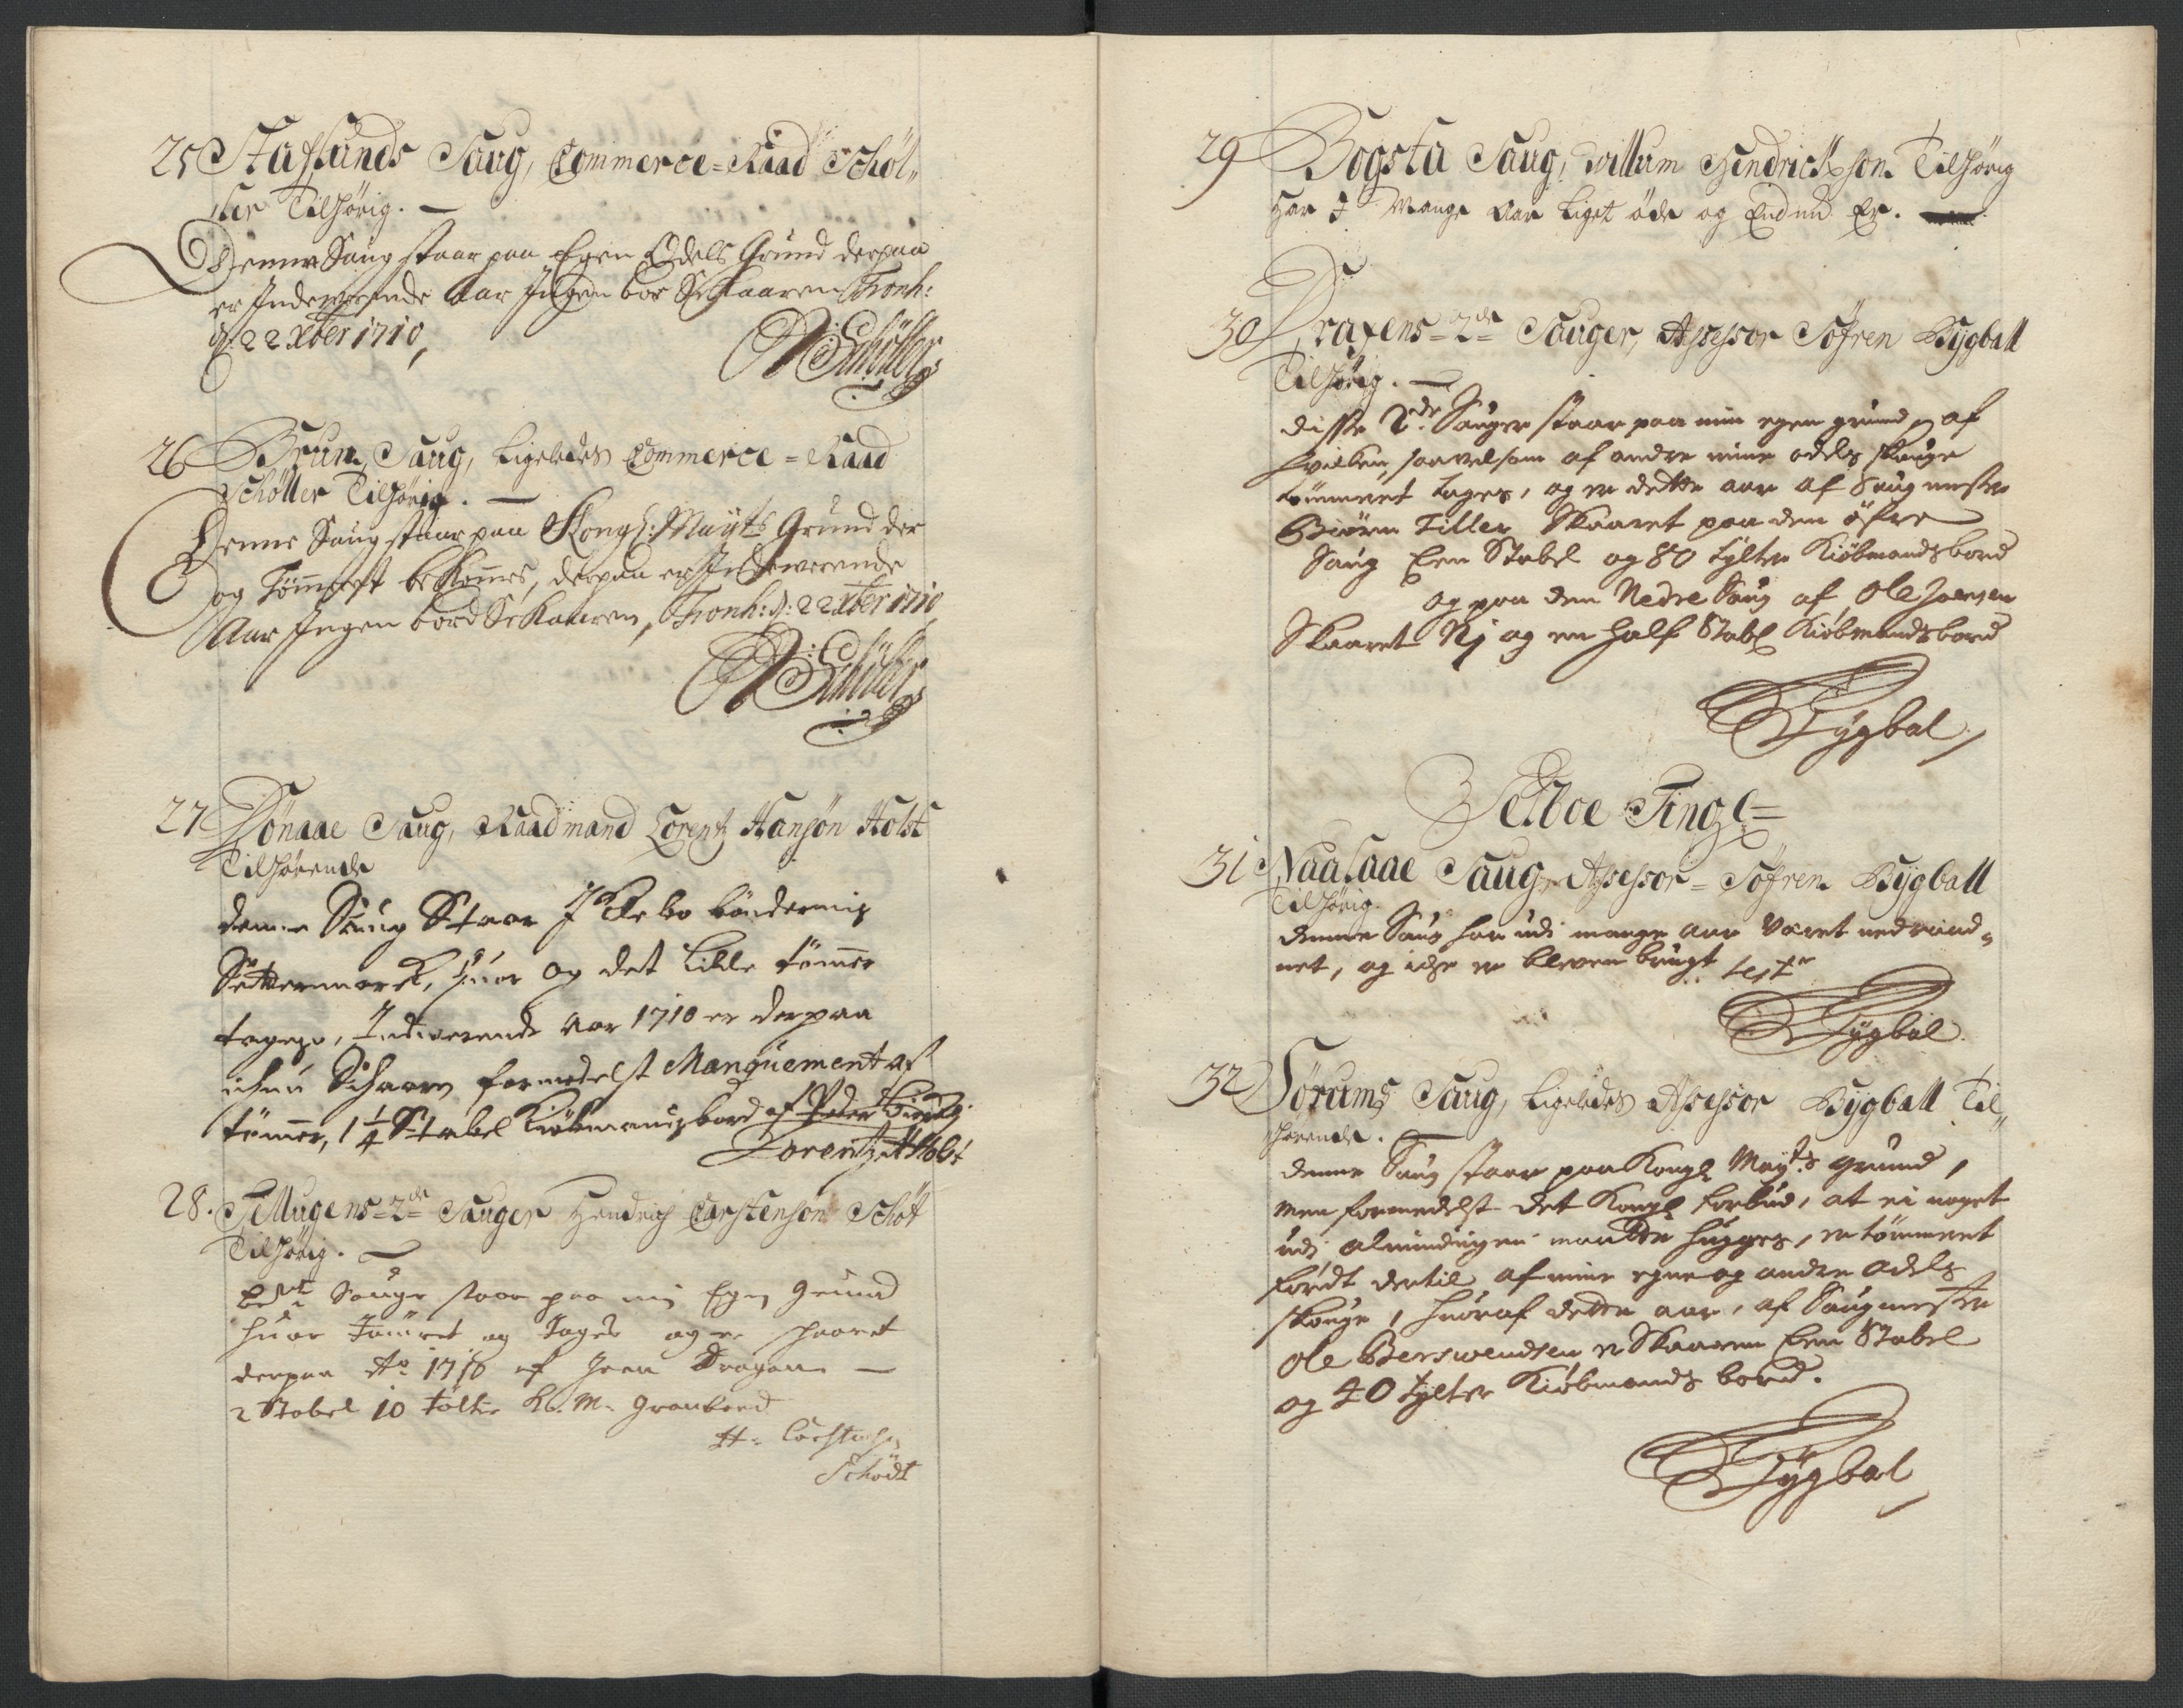 25 Stafsunds Saug, Commerce=Raad Schøl„
ler Tilhørig. —
Denne Saug staar paa Egen Odels Grund derpaa
er Indewerende Aar Ingen bor Skaaren Tronh:
d: 22 Xber 1710,
Schøller
26 Bruns Saug, Ligeledes Commerce=Raad
Schøller Tilhørig. —
Denne Saug staar paa Kongl: Mayts Grund der
og Tømret bekomes, derpaa er Indewerende
Aar Ingen bord Skaaren, Tronh: d: 22 Xber 1710
Schøller
27 Hønaae Saug, Raadmand Lorentz Hansøn Holst
Tilhørende
denne Saug Staar I bønderniß
Settermark, huor og det Lille tømer
tages, Indwerende Aar 1710 er derpaa
Schaaren formedelst Manquement af
tømer, 1 1/4 Stabel Kiøbmandsbord af Peder
Lorentz H Holst
28. Tellugens 2de Sauger Hendrich Carstensøn Schøt
Tilhørig. —
Sauge staar paa min Egen Grund
huor Tømret og Tages og er skaaret
derpaa Ao 1710 af Joen Dragaas —
2 Stabel 10 tølter K. M. Granbord
H: Carstensen
Schødt
29 Bogsta Saug, Willum Hendrickson Tilhørig
Har I Mange Aar Liget øde og Endnu Er.
30 Draxens 2de Sauger, Assessor Søfren Bygball
Tilhørig. —
disse 2de Sauger staar paa min egen grund, af
hvilken, saavelsom af andre mine odels skouge
tømmeret tages, og er dette aar af Saugmester
Biørn Tiller Skaaret paa den øfre
Saug Een Stabel og 80 tylter Kiøbmandsbord
og paa den Nedre Saug af Ole Joensen
Skaaret Nj og en half Stabl Kiøbmandsbord
Bygbal
Selboe Tingl=
31 Naalaae Saug, Assessor = Søfren Bygball
Tilhørig.
denne Saug har udi mange aar Været nedraad„
net, og icke er bleven brugt test
Bygbal
32 Sørums Saug, Ligeledes Assessor Bygball Til„
hørende. —
denne Saug staar paa Kongl Mayts grund,
men formedelst det Kongl forbud, at ei noget
udi almindingen maatte hugges, er tømmeret
kiørdt dertil af mine egne og andre odels
skouge, huoraf dette aar, af Saugmester
Ole Berswendsen er Skaaren Een Stabel
og 40 tylter Kiøbmands bord.
Bygbal